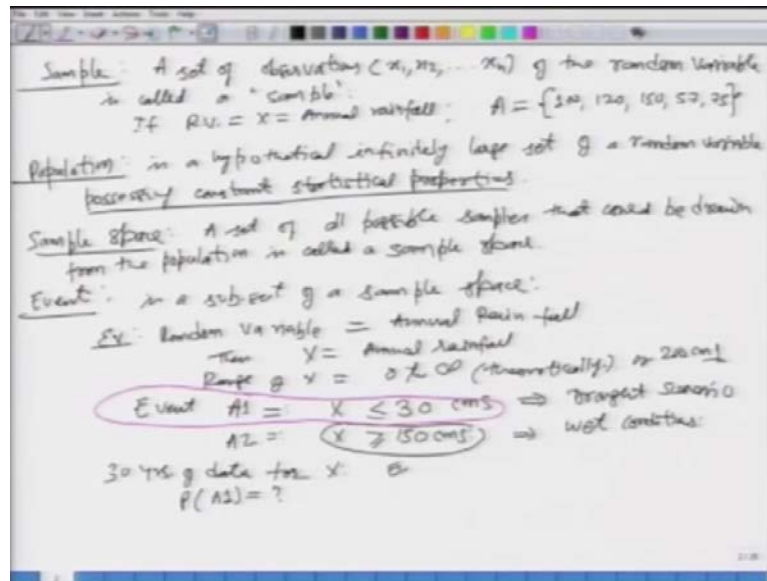 Sample: A set of observations (x1, x2, ... xn) of the random variable
is called a "sample".
If R.V. = X = Annual rainfall; A = {100, 120, 150, 57, 75}
Population: is a hypothetical infinitely large set of a random variable
possessing constant statistical properties.
Sample space: A set of all possible samples that could be drawn
from the population is called a sample space.
Event: is a subset of a sample space:
Ex: Random Variable = Annual Rain-fall
Then X = Annual rainfall
Range of X = 0 to ∞ (theoretically) or 200 cms
Event A1 = X ≤ 30 cms ⇒ Drought Scenario
A2 = X ≥ 150 cms ⇒ wet conditions:
30 yrs of data for X:
P(A1) = ?